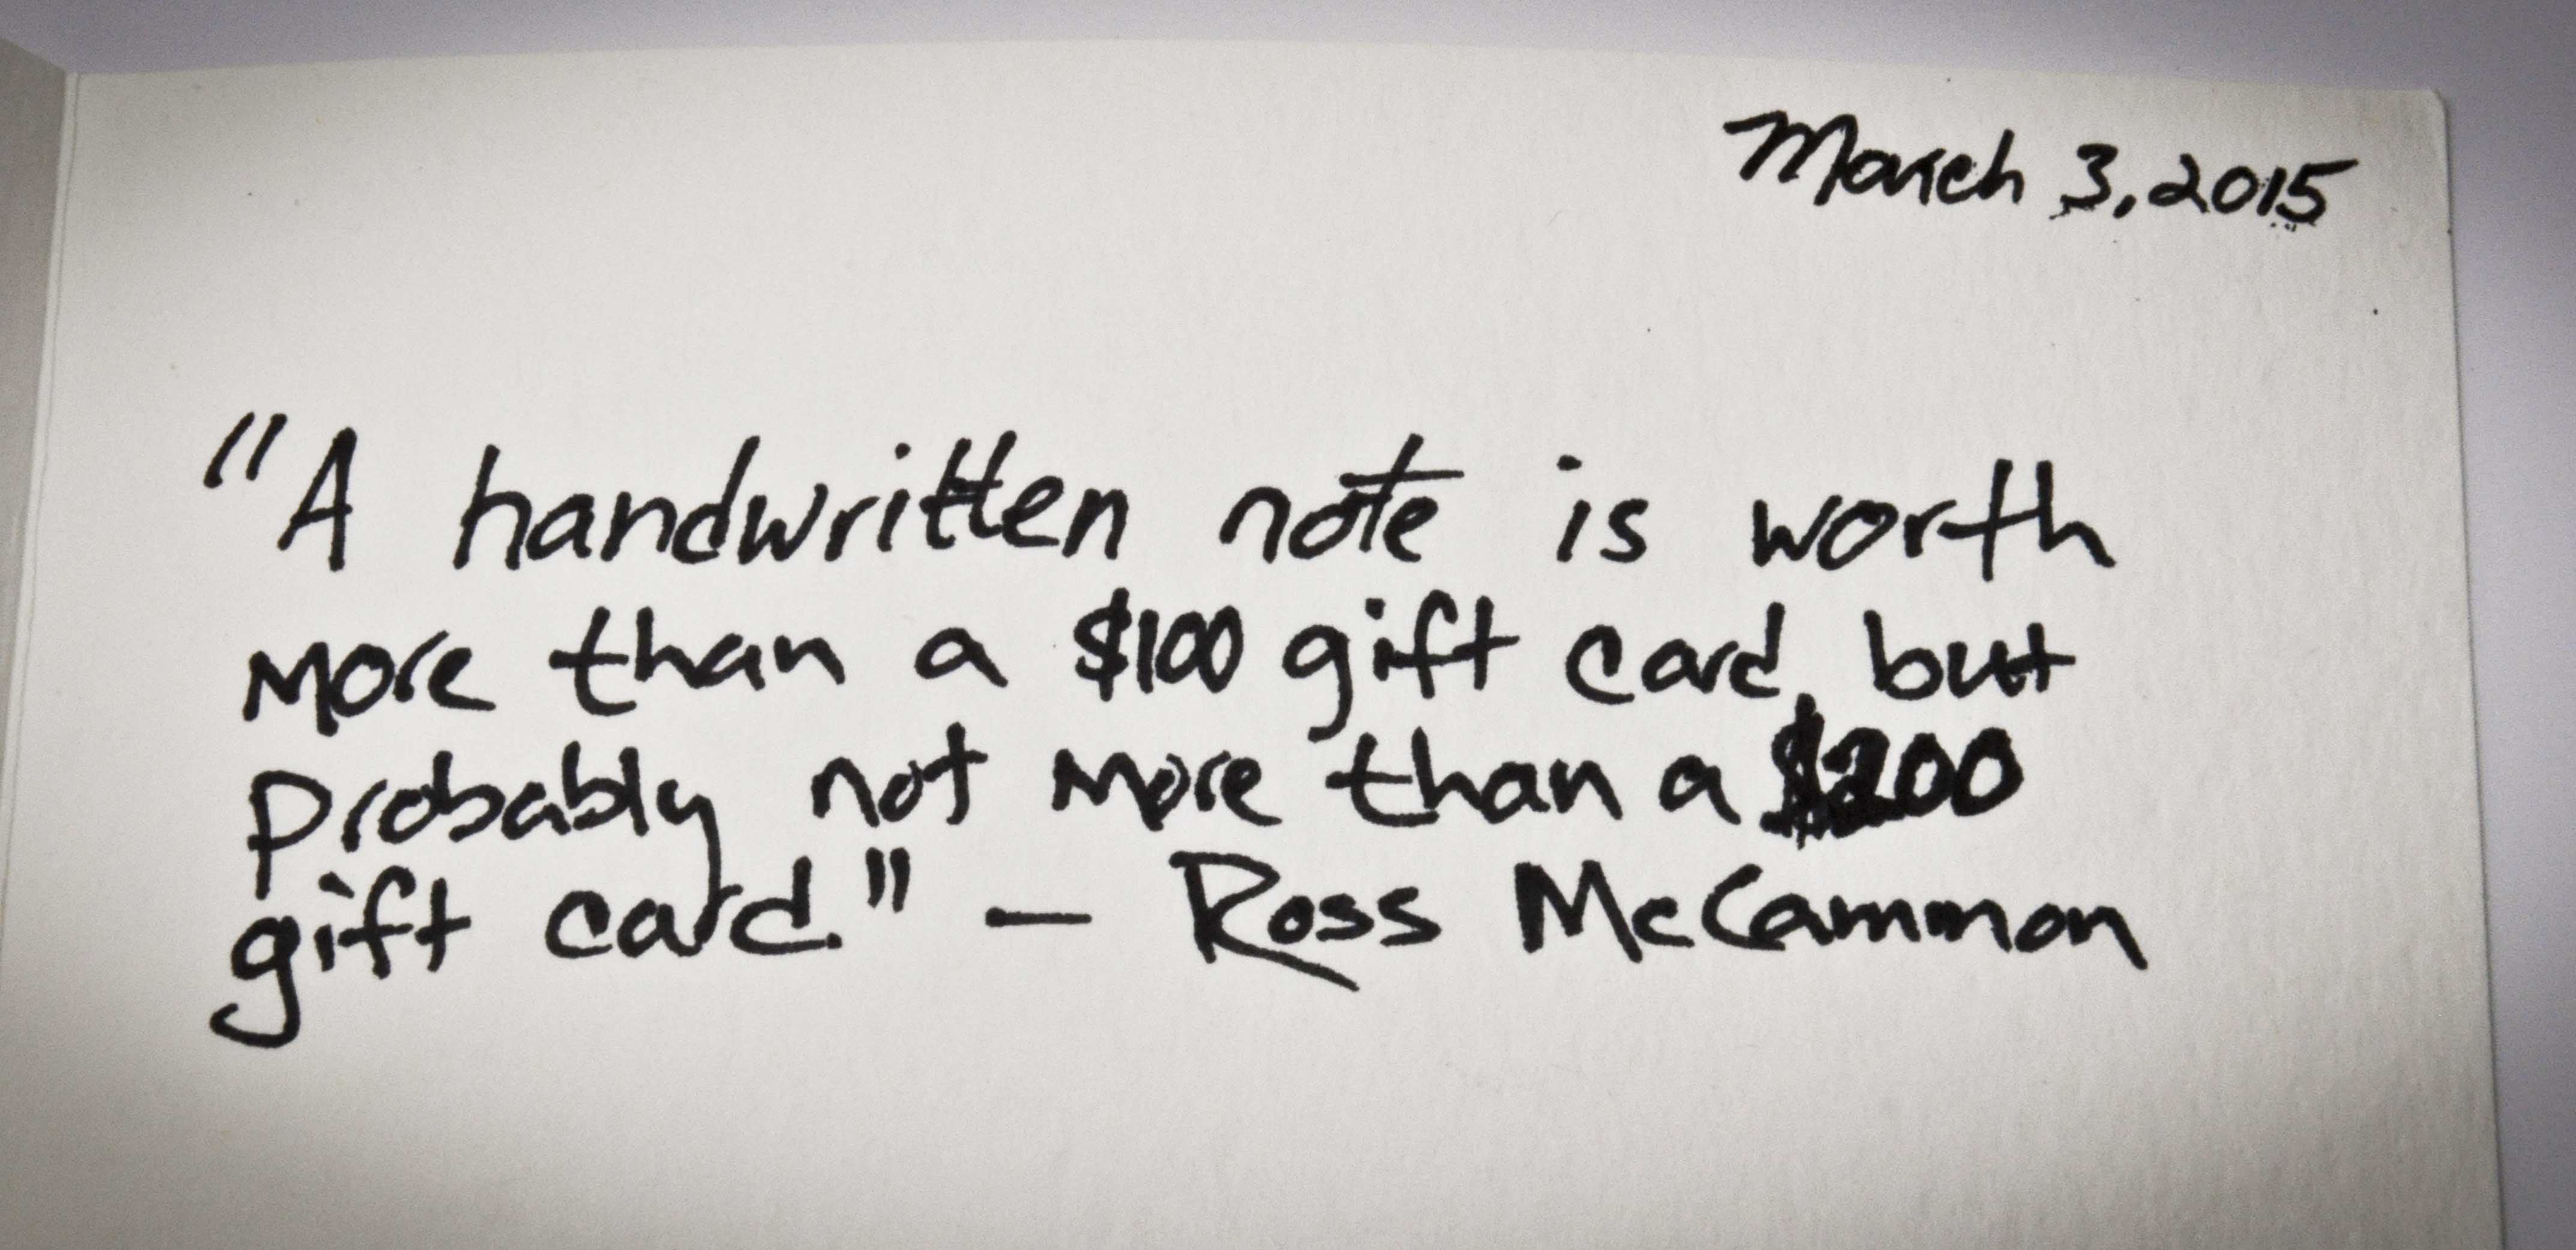 March 3, 2015
"A handwritten note is worth
more than a $100 gift card, but
probably not more than a $200
gift card." — Ross McCammon